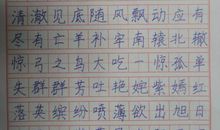 清澈见底随风飘动应有
尽有亡羊补牢南辕北辙
惊弓之鸟大吃一惊孤单
失群群芳吐艳姹紫嫣红
落英缤纷喷薄欲出旭日